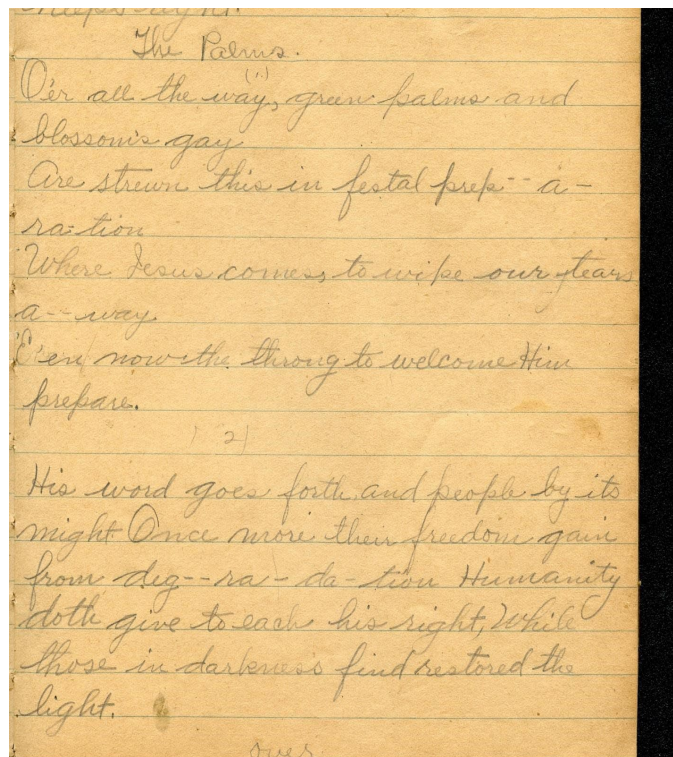 The Palms.
(1)
O'er all the way, green palms and
blossoms gay
Are strewn this in festal prep-- a-
ra-tion
Where Jesus comes, to wipe our tears
a-- way.
E'en now the throng to welcome Him
prepare.
2
His word goes forth, and people by its
might Once more their freedom gain
from deg-- ra - da - tion Humanity
doth give to each his right, While
those in darkness find restored the
light.
over